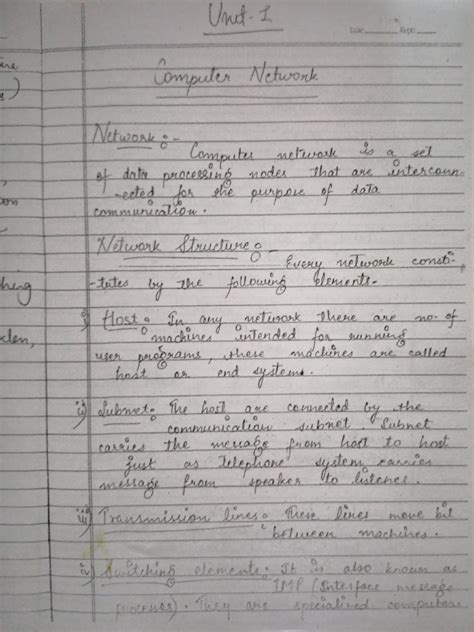 Unit-1
Date: Page:
Computer Network
Network :-
Computer network is a set
of data processing nodes that are interconn-
-ected for the purpose of data
communication.
Network Structure :-
Every network consti-
-tutes by the following elements-
i) Host : In any network there are no. of
machines intended for running
user programs, these machines are called
host or end system.
ii) Subnet : The host are connected by the
communication subnet. Subnet
carries the message from host to host
just as Telephone system carries
message from speaker to listener.
iii) Transmission lines : These lines move bit
between machines.
iv) Switching elements : It is also known as
IMP (Interface message
processes). They are specialized computers